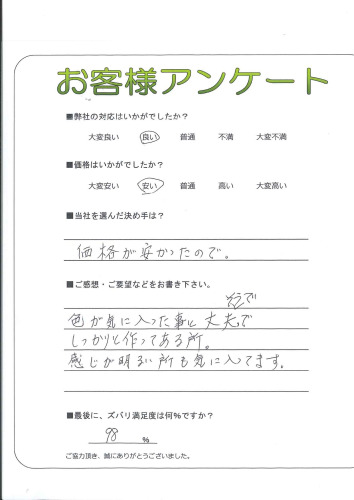 お客様アンケート
■弊社の対応はいかがでしたか？
大変良い　良い　普通　不満　大変不満
■価格はいかがでしたか？
大変安い　安い　普通　高い　大変高い
■当社を選んだ決め手は？
価格が安かったので。
■ご感想・ご要望などをお書き下さい。
そうで
色が気に入った事と丈夫で
しっかりと作ってある所。
感じが明るい所も気に入ってます。
■最後に、ズバリ満足度は何%ですか？
98 %
ご協力頂き、誠にありがとうございました。